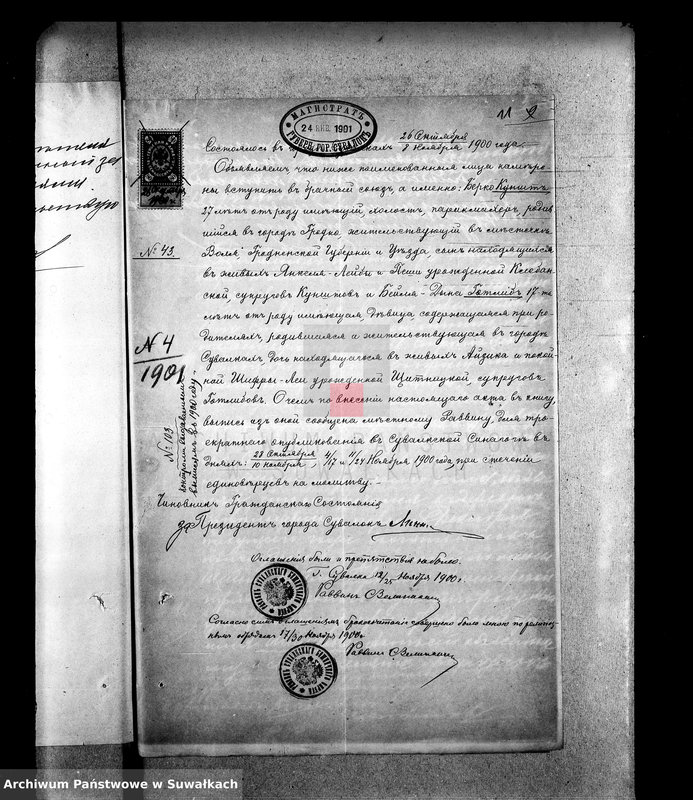 МАГИСТРАТЪ
24 ЯНВ. 1901
ГУБЕРН. ГОР. СУВАЛОКЪ
26 Сентября
Состоялось въ 8 Ноября 1900 года.
Объявляемъ что ниже поименованныя лица намѣре-
ны вступить въ брачный союзъ, а именно: Берко Кунштъ
27 лѣтъ отъ роду имѣющій, холостъ, парикмахеръ, родив-
шійся въ городѣ Гродно, жительствующій въ мѣстечкѣ
Волѣ, Гродненской Губерніи и Уѣзда, сынъ находящихся
въ живыхъ Янкеля-Лейбы и Пеши урожденной Клебан-
ской, супруговъ Кунштовъ и Бейля-Дына Готлибъ 17-ти
лѣтъ отъ роду имѣющая дѣвица, содержащаяся при ро-
дителяхъ, родившаяся и жительствующая въ городѣ
Сувалкахъ, дочь находящагося въ живыхъ Айзика и покой-
ной Шифры-Леи урожденной Щитницкой, супруговъ
Готлибовъ. О чемъ по внесеніи настоящаго акта въ книгу,
выпись изъ оной сообщена мѣстному Раввину, для тро-
екратнаго опубликованія въ Сувалкской Синагогѣ въ
дняхъ: 28 Сентября / 10 Ноября, 4/17 и 11/24 Ноября 1900 года, при стеченіи
единовѣрцевъ на молитву.-
Чиновникъ Гражданскаго Состоянія
за Президентъ города Сувалокъ
№ 43.
№ 4
1901
№ 103
въ 1900 году
Оглашенія были и препятствія не было.
г. Сувалки 12/25 Ноября 1900 г.
Раввинъ
Согласно симъ оглашеніямъ бракосочетаніе совершено было мною по религіоз-
нымъ обрядамъ 17/30 Ноября 1900 г.
Раввинъ
Archiwum Państwowe w Suwałkach